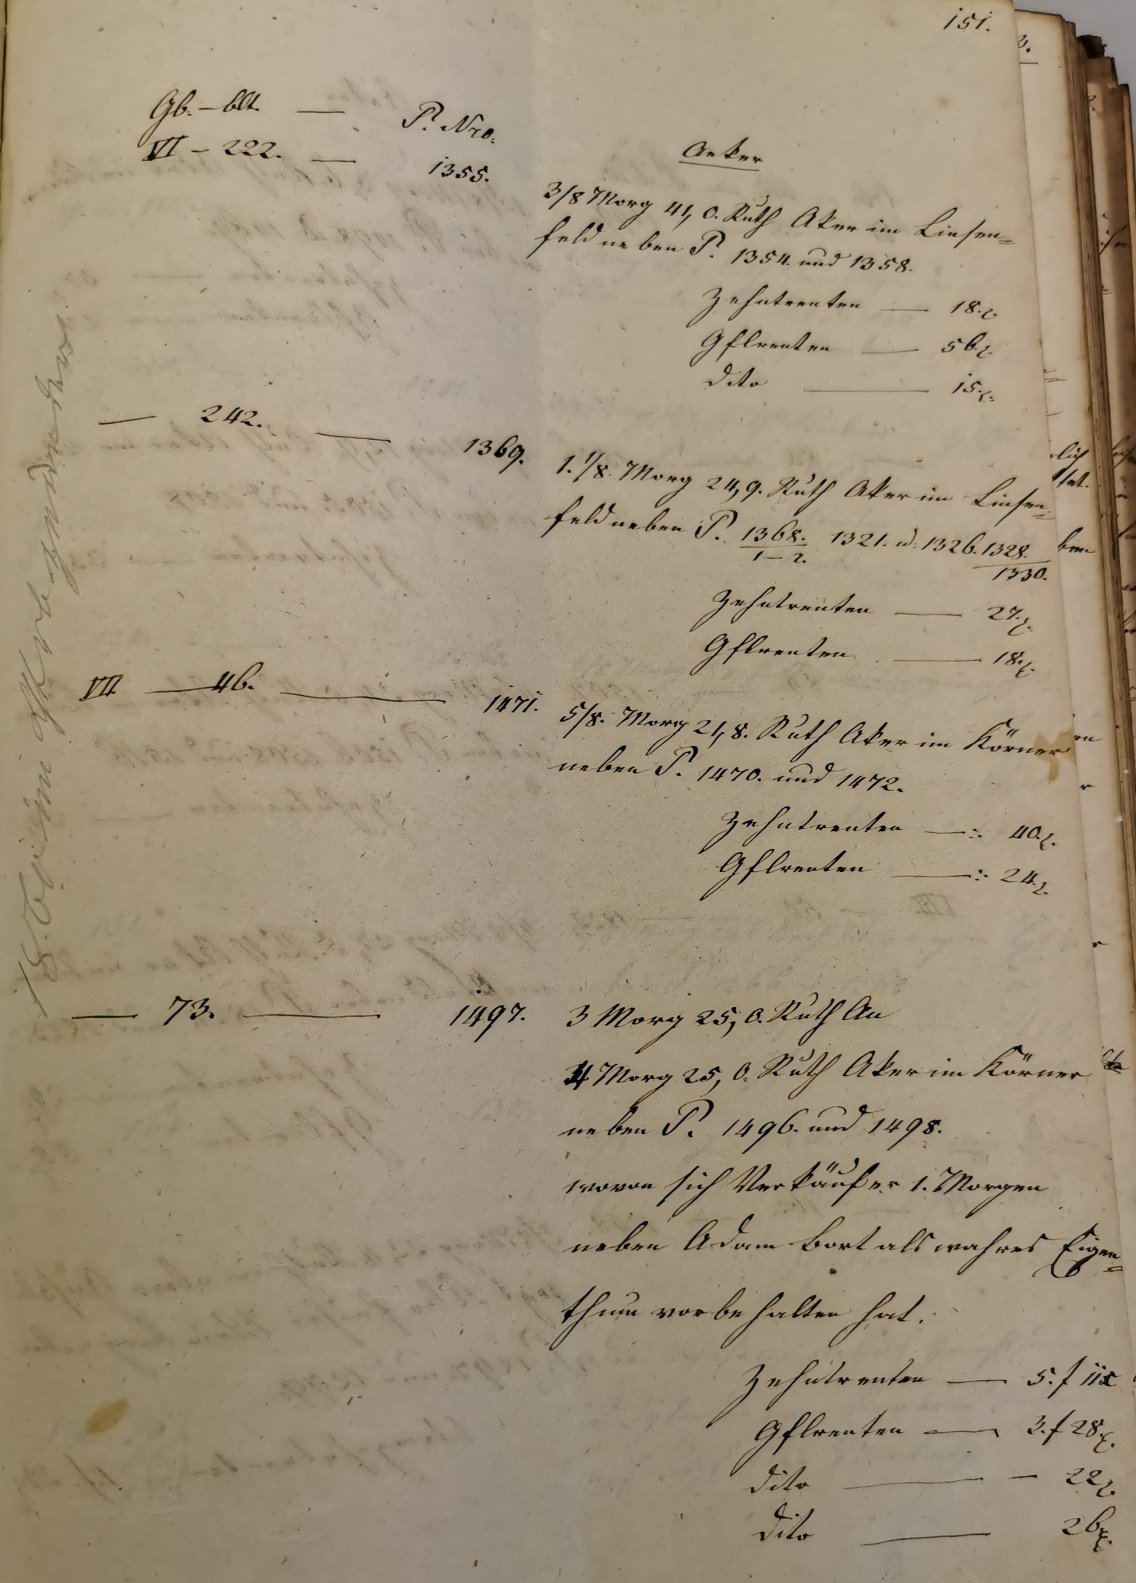 151.
Gb.-blt. — P. Nro.
VI - 222. — 1355.
Aeker
3/8 Morg 41,0. Ruth Aker im Linsen=
feld neben P. 1354. und 1358.
Zehntrenten — 18.x.
Gflrenten — 56x.
dito — 15.x.
— 242. — 1369.
1.1/8. Morg 24,9. Ruth Aker im Linsen=
feld neben P. 1368./1-2. 1321. u. 1326. 1328./1330.
Zehntrenten — 27.x.
Gflrenten — 18.x.
VII — 46. — 1471.
5/8. Morg 21,8. Ruth Aker im Körner
neben P. 1470. und 1472.
Zehntrenten —: 40.x.
Gflrenten —: 24.x.
— 73. — 1497.
3 Morg 25,0. Ruth An
4 Morg 25,0. Ruth Aker im Körner
neben P. 1496. und 1498.
wovon sich Verkäufer 1. Morgen
neben Adam Bort als wahres Eigen=
thum vorbehalten hat.
Zehntrenten — 5.f 11x
Gflrenten — 3.f 28.x.
dito — 22x.
dito — 26x.